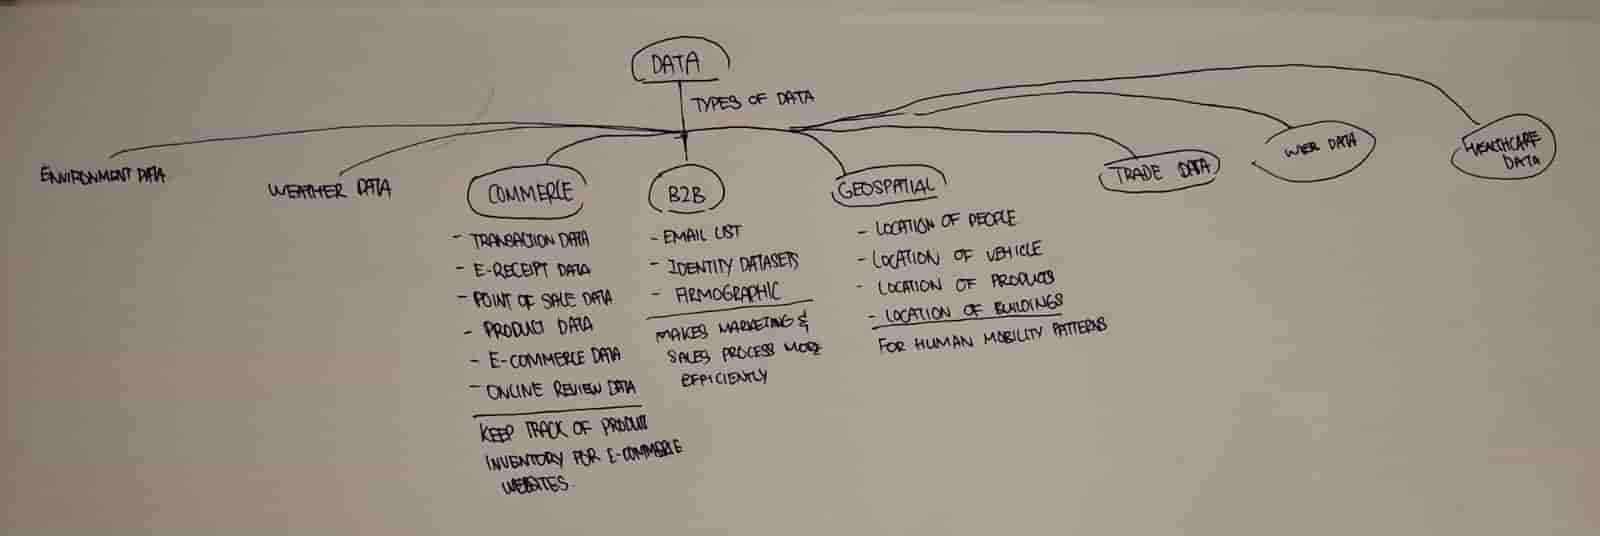 DATA
TYPES OF DATA
ENVIRONMENT DATA
WEATHER DATA
COMMERCE
- TRANSACTION DATA
- E-RECEIPT DATA
- POINT OF SALE DATA
- PRODUCT DATA
- E-COMMERCE DATA
- ONLINE REVIEW DATA
KEEP TRACK OF PRODUCT
INVENTORY FOR E-COMMERCE
WEBSITES.
B2B
- EMAIL LIST
- IDENTITY DATASETS
- FIRMOGRAPHIC
MAKES MARKETING &
SALES PROCESS MORE
EFFICIENTLY
GEOSPATIAL
- LOCATION OF PEOPLE
- LOCATION OF VEHICLE
- LOCATION OF PRODUCTS
- LOCATION OF BUILDINGS
FOR HUMAN MOBILITY PATTERNS
TRADE DATA
WEB DATA
HEALTHCARE
DATA